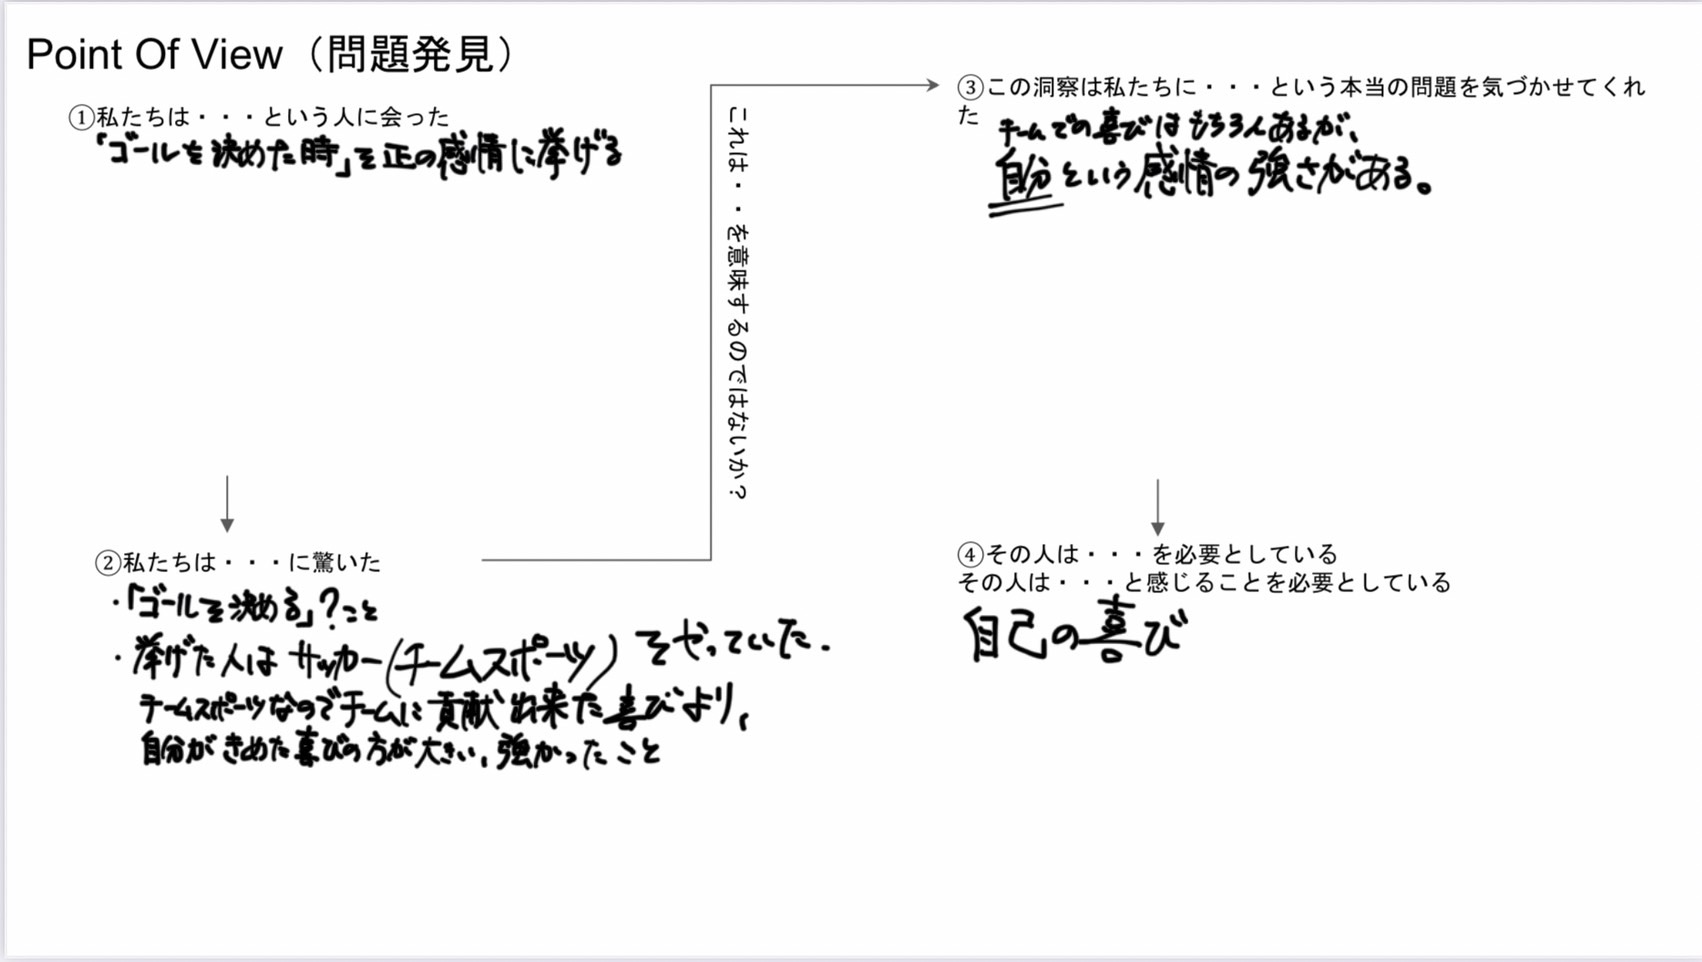 Point Of View（問題発見）
①私たちは・・・という人に会った
「ゴールを決めた時」を正の感情に挙げる
②私たちは・・・に驚いた
・「ゴールを決める」?こと
・挙げた人は サッカー(チームスポーツ) をやっていた.
チームスポーツなのでチームに貢献出来た喜びより、
自分がきめた喜びの方が大きい、強かったこと
これは・・を意味するのではないか？
③この洞察は私たちに・・・という本当の問題を気づかせてくれ
た
チームでの喜びはもちろんあるが、
自分という感情の強さがある。
④その人は・・・を必要としている
その人は・・・と感じることを必要としている
自己の喜び